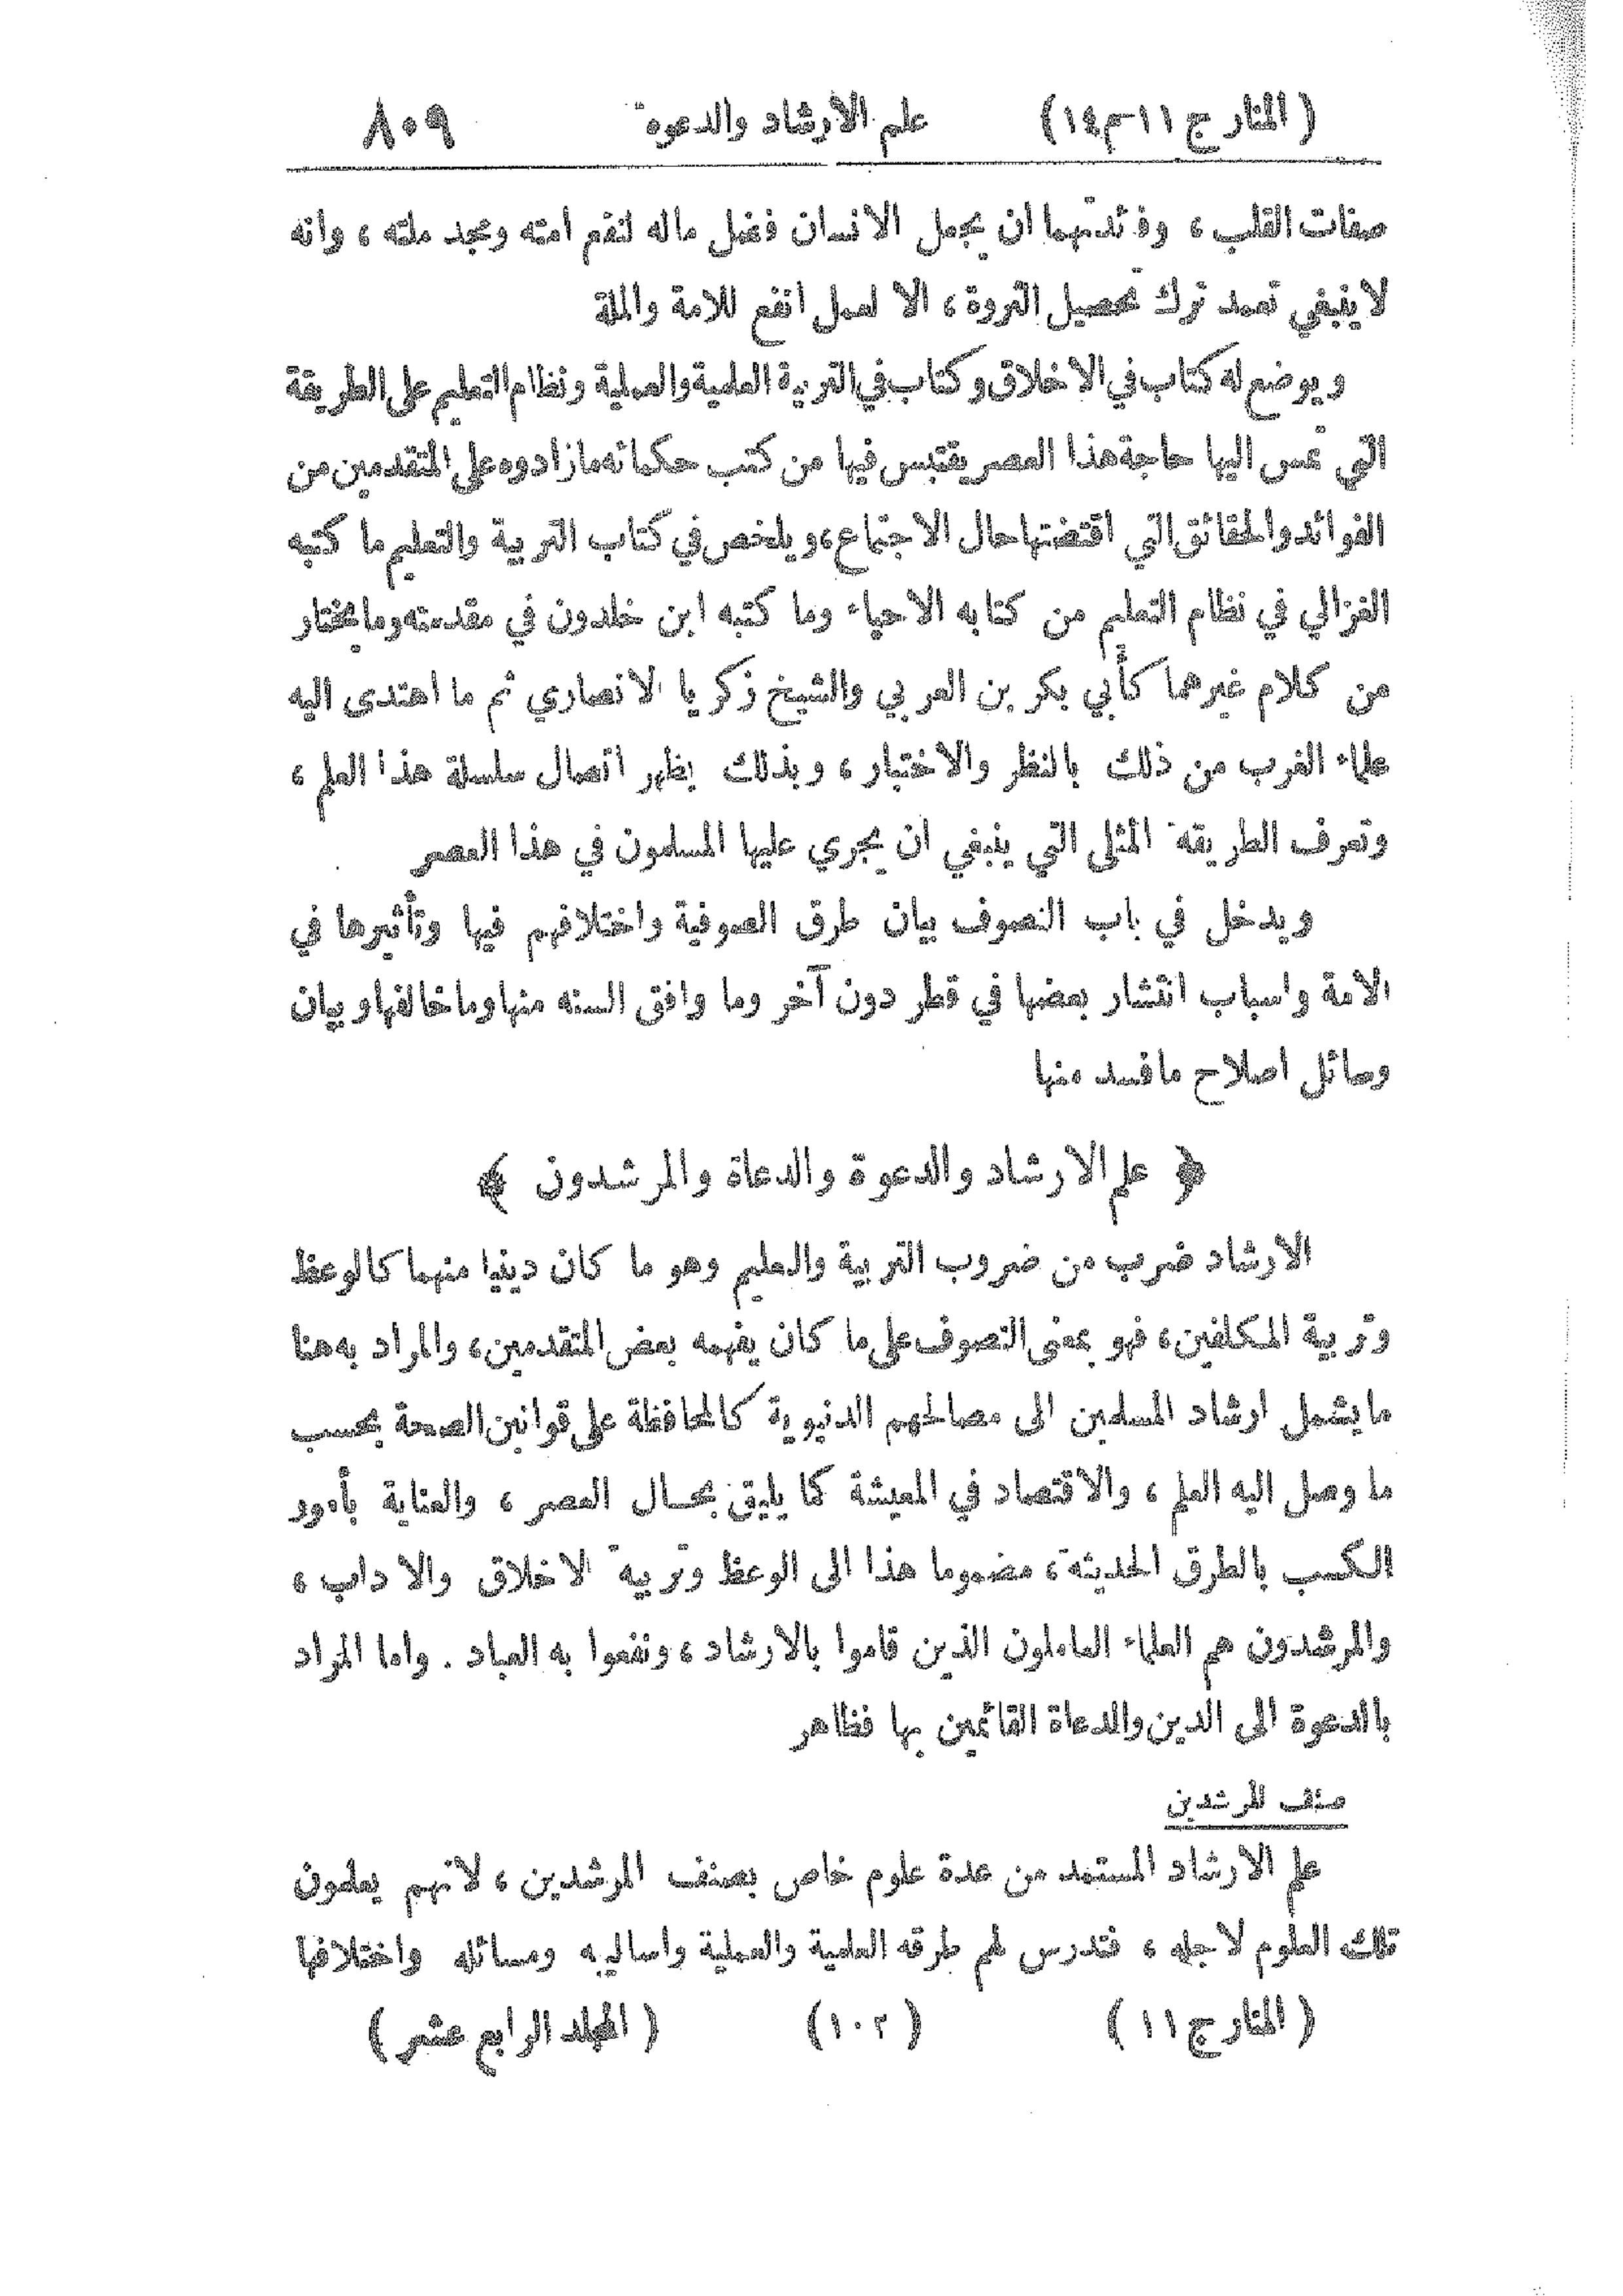 (المنار ج ١١ م ١٤) علم الارشاد والدعوة ٨٠٩
صفات القلب، وفائدتهما ان يجعل الانسان فضل ماله لنفع امته ومجد ملته، وانه
لا ينبغي تعمد ترك تحصيل الثروة، الا لعمل انفع للامة والملة
ويوضع له كتاب في الاخلاق وكتاب في التربية العلمية والعملية ونظام التعليم على الطريقة
التي تمس اليها حاجة هذا العصر يقتبس فيها من كتب حكمائه ما زادوه على المتقدمين من
الفوائد والحقائق التي اقتضتها حال الاجتماع، ويلخص في كتاب التربية والتعليم ما كتبه
الغزالي في نظام التعليم من كتابه الاحياء وما كتبه ابن خلدون في مقدمته وما يختار
من كلام غيرهما كأبي بكر بن العربي والشيخ زكريا الانصاري ثم ما اهتدى اليه
علماء الغرب من ذلك بالنظر والاختبار، وبذلك يظهر اتصال سلسلة هذا العلم،
وتعرف الطريقة المثلى التي ينبغي ان يجري عليها المسلمون في هذا العصر
ويدخل في باب التصوف بيان طرق الصوفية واختلافهم فيها وتأثيرها في
الامة واسباب انتشار بعضها في قطر دون آخر وما وافق السنه منها وما خالفها وبيان
وسائل اصلاح ما فسد منها
﴿ علم الارشاد والدعوة والدعاة والمرشدون ﴾
الارشاد ضرب من ضروب التربية والتعليم وهو ما كان دينيا منهما كالوعظ
وتربية المكلفين، فهو بمعنى التصوف على ما كان يفهمه بعض المتقدمين، والمراد به هنا
ما يشمل ارشاد المسلمين الى مصالحهم الدنيوية كالمحافظة على قوانين الصحة بحسب
ما وصل اليه العلم، والاقتصاد في المعيشة كما يليق بحال العصر، والعناية بأمور
الكسب بالطرق الحديثة، مضموما هذا الى الوعظ وتربية الاخلاق والاداب،
والمرشدون هم العلماء العاملون الذين قاموا بالارشاد، ونفعوا به العباد. واما المراد
بالدعوة الى الدين والدعاة القائمين بها فظاهر
صنف المرشدين
علم الارشاد المستمد من عدة علوم خاص بصنف المرشدين، لانهم يعلمون
تلك العلوم لاجله، فتدرس لهم طرقه العلمية والعملية واساليبه ومسائله واختلافها
(المنار ج ١١) (١٠٢) (المجلد الرابع عشر)